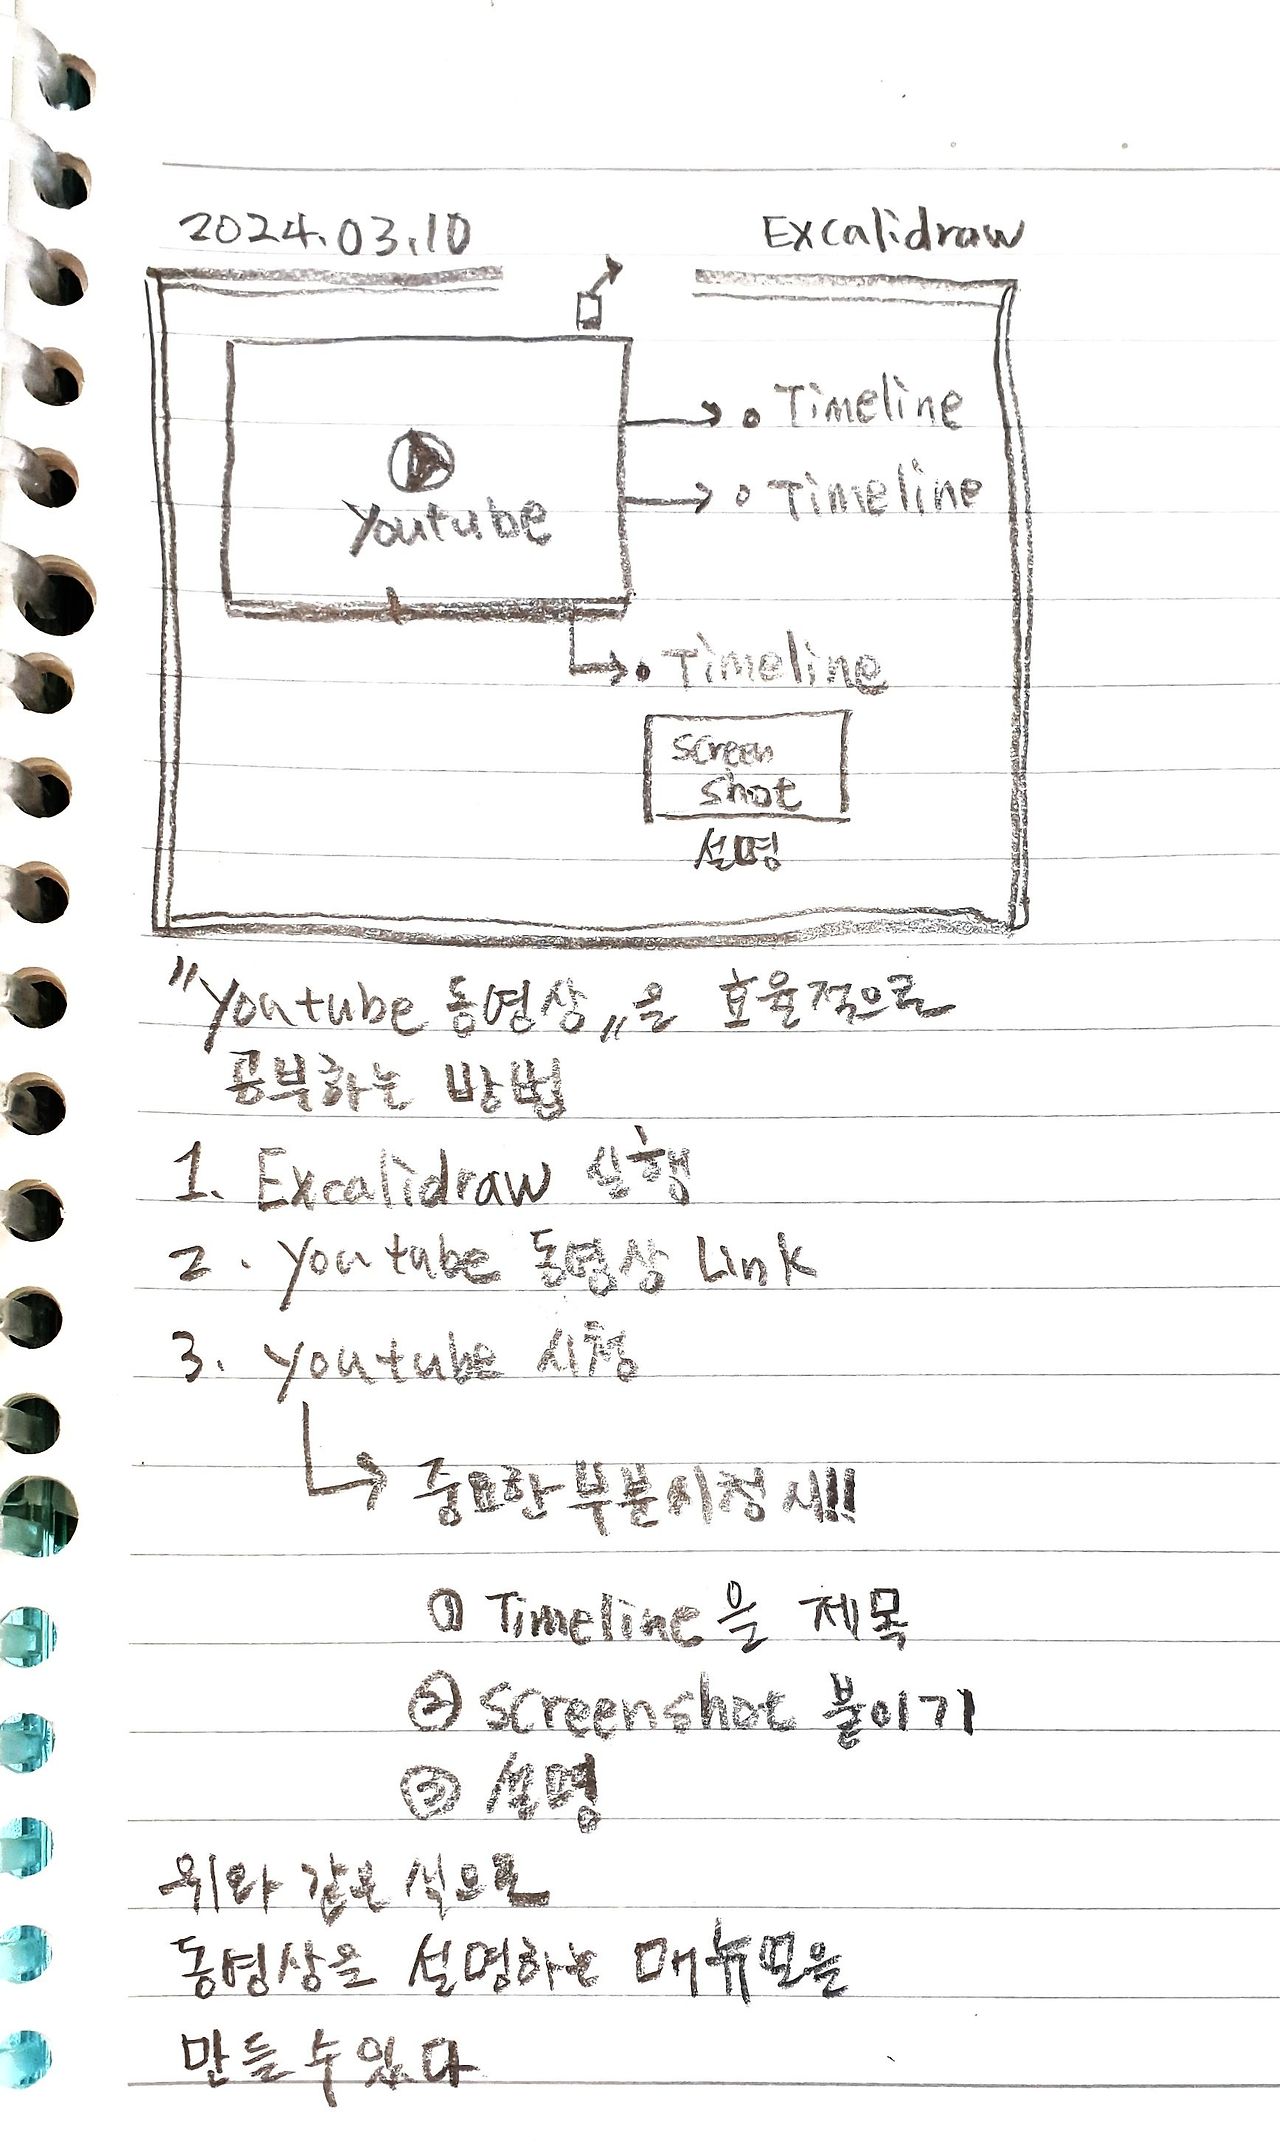 2024.03.10
Excalidraw
Timeline
Timeline
Youtube
Timeline
screen
shot
설명
"Youtube 동영상"을 효율적으로
공부하는 방법
1. Excalidraw 실행
2. Youtube 동영상 Link
3. Youtube 시청
중요한 부분 시청시!!
① Timeline을 제목
② Screenshot 붙이기
③ 설명
위와 같은 식으로
동영상을 설명하는 매뉴얼을
만들 수 있다